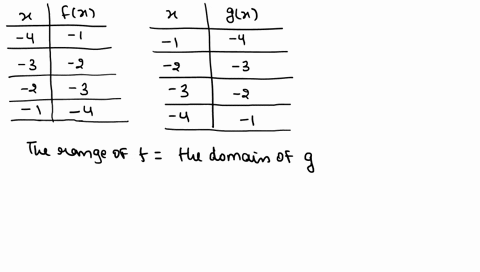 x f(x) x g(x)
-4 -1 -1 -4
-3 -2 -2 -3
-2 -3 -3 -2
-1 -4 -4 -1
The range of f = the domain of g